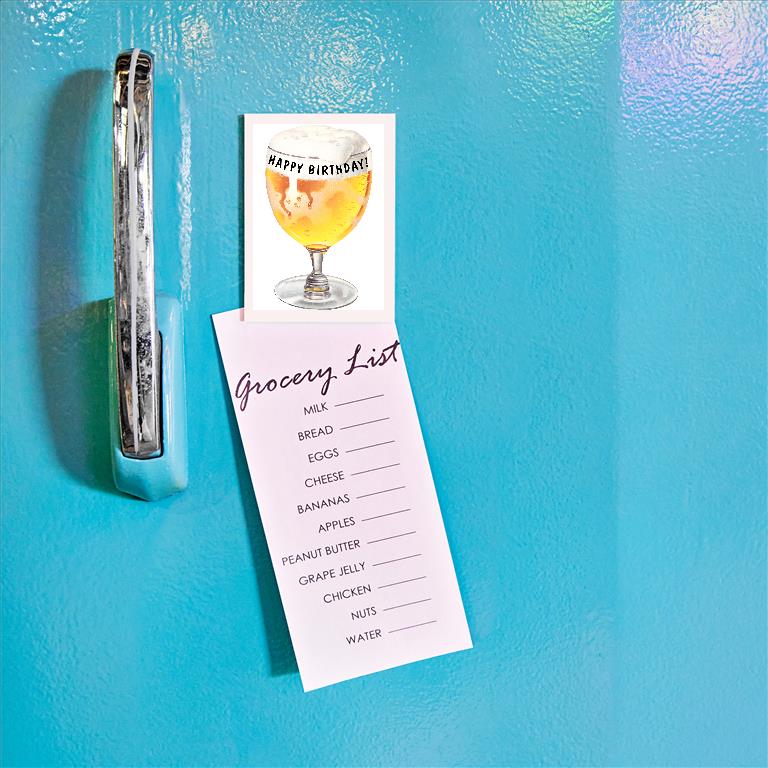 HAPPY BIRTHDAY!
Grocery List
MILK
BREAD
EGGS
CHEESE
BANANAS
APPLES
PEANUT BUTTER
GRAPE JELLY
CHICKEN
NUTS
WATER